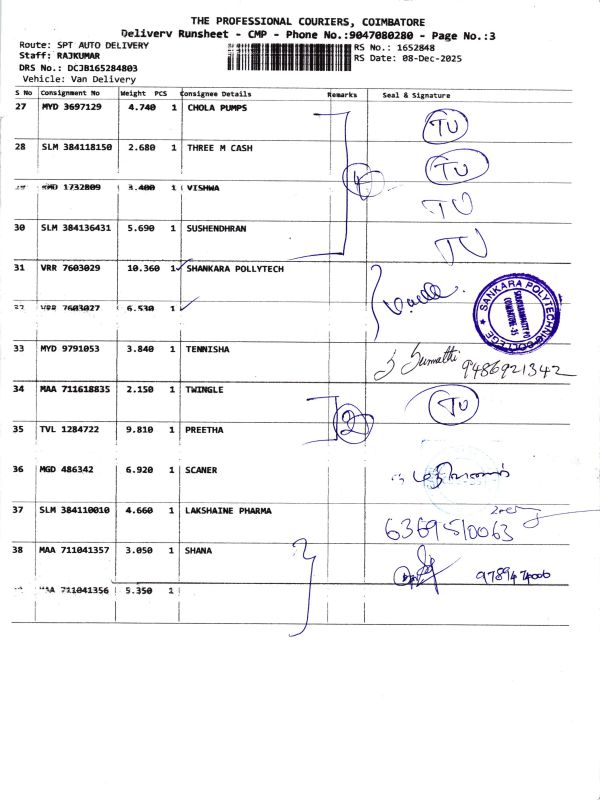 THE PROFESSIONAL COURIERS, COIMBATORE
Delivery Runsheet - CMP - Phone No.:9047080280 - Page No.:3
Route: SPT AUTO DELIVERY RS No.: 1652848
Staff: RAJKUMAR RS Date: 08-Dec-2025
DRS No.: DCJB165284803
Vehicle: Van Delivery
S No Consignment No Weight PCS Consignee Details Remarks Seal & Signature
27 MYD 3697129 4.740 1 CHOLA PUMPS TU
28 SLM 384118150 2.680 1 THREE M CASH TU
4
1732809 3.400 1 VISHWA TU
30 SLM 384136431 5.690 1 SUSHENDHRAN TU
31 VRR 7603029 10.360 1 SHANKARA POLLYTECH
SANKARA POLYTECHNIC COLLEGE
VRR 7603027 6.530 1
33 MYD 9791053 3.840 1 TENNISHA S Sumathi 9486921342
34 MAA 711618835 2.150 1 TWINGLE TU
2
35 TVL 1284722 9.810 1 PREETHA
36 MGD 486342 6.920 1 SCANER
37 SLM 384110010 4.660 1 LAKSHAINE PHARMA
6369510063
38 MAA 711041357 3.050 1 SHANA 9789474000
MAA 711041356 5.350 1